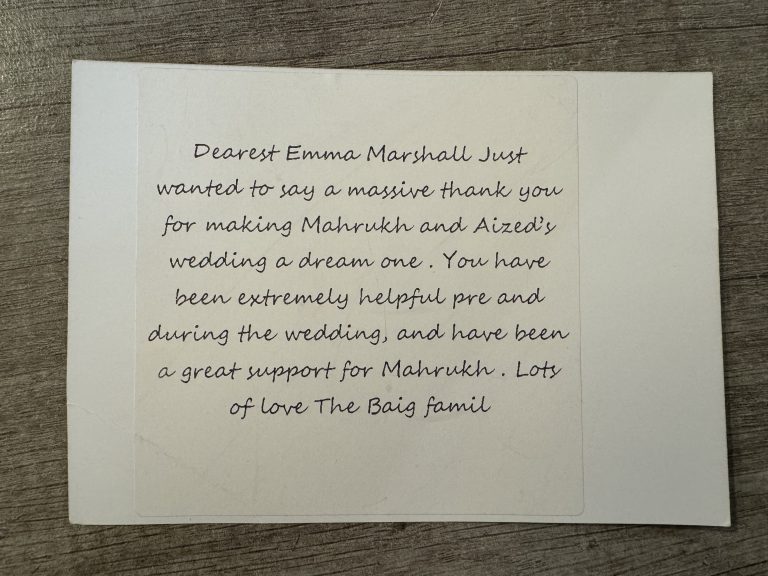 Dearest Emma Marshall Just
wanted to say a massive thank you
for making Mahrukh and Aized's
wedding a dream one . You have
been extremely helpful pre and
during the wedding, and have been
a great support for Mahrukh . Lots
of love The Baig famil